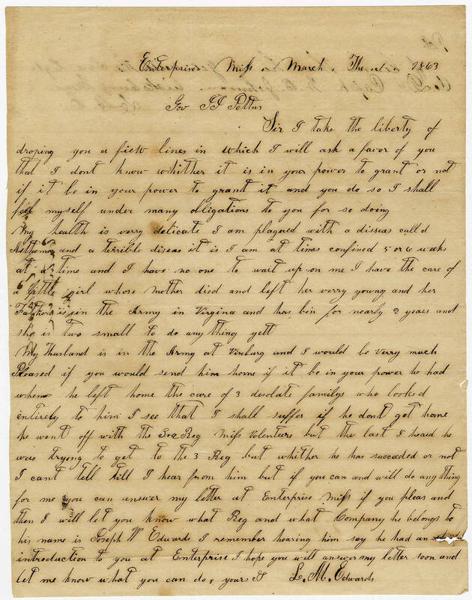 Enterprise Miss March The 1863
Gov JJ Pettus
Sir I take the liberty of
droping you a few lines in which I will ask a favor of you
that I dont know whether it is in your power to grant or not
if it be in your power to grant it and you do so I shall
feel myself under many obligations to you for so doing
My health is very delicate I am plagued with a diseas calld
Asthma and a terrible diseas it is I am at times confined 5 or 6 weeks
at a time and I have no one to wait up on me I have the care of
a little girl whose mother died and left her verry young and her
Father is in the Army in Virginia and has bin for nearly 2 years and
she is two small to do any thing yett
My Husband is in the Army at Vixburg and I would be very much
pleased if you would send him home if it be in your power he had
when he left home the care of 3 desolate familys who looked
entirely to him I see that I shall suffer if he dont get home
he went off with the Reg Miss Volenteers but the last I heard he
was trying to get to the 3 Reg but whether he has succeded or not
I cant tell till I hear from him but if you can and will do any thing
for me you can answer my letter at Enterprise Miss if you pleas and
then I will let you know what Reg and what Company he belongs to
his name is Joseph W Edwards I remember hearing him say he had an
introduction to you at Enterprise I hope you will answer my letter soon and
let me know what you can do, yours &
L. M. Edwards